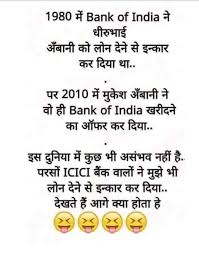 1980 में Bank of India ने
धीरुभाई
अँबानी को लोन देने से इन्कार
कर दिया था..
.
पर 2010 में मुकेश अँबानी ने
वो ही Bank of India खरीदने
का ऑफर कर दिया..
.
इस दुनिया में कुछ भी असंभव नहीं है..
परसों ICICI बैंक वालों ने मुझे भी
लोन देने से इन्कार कर दिया..
देखते हैं आगे क्या होता हे
😝😝😝😝